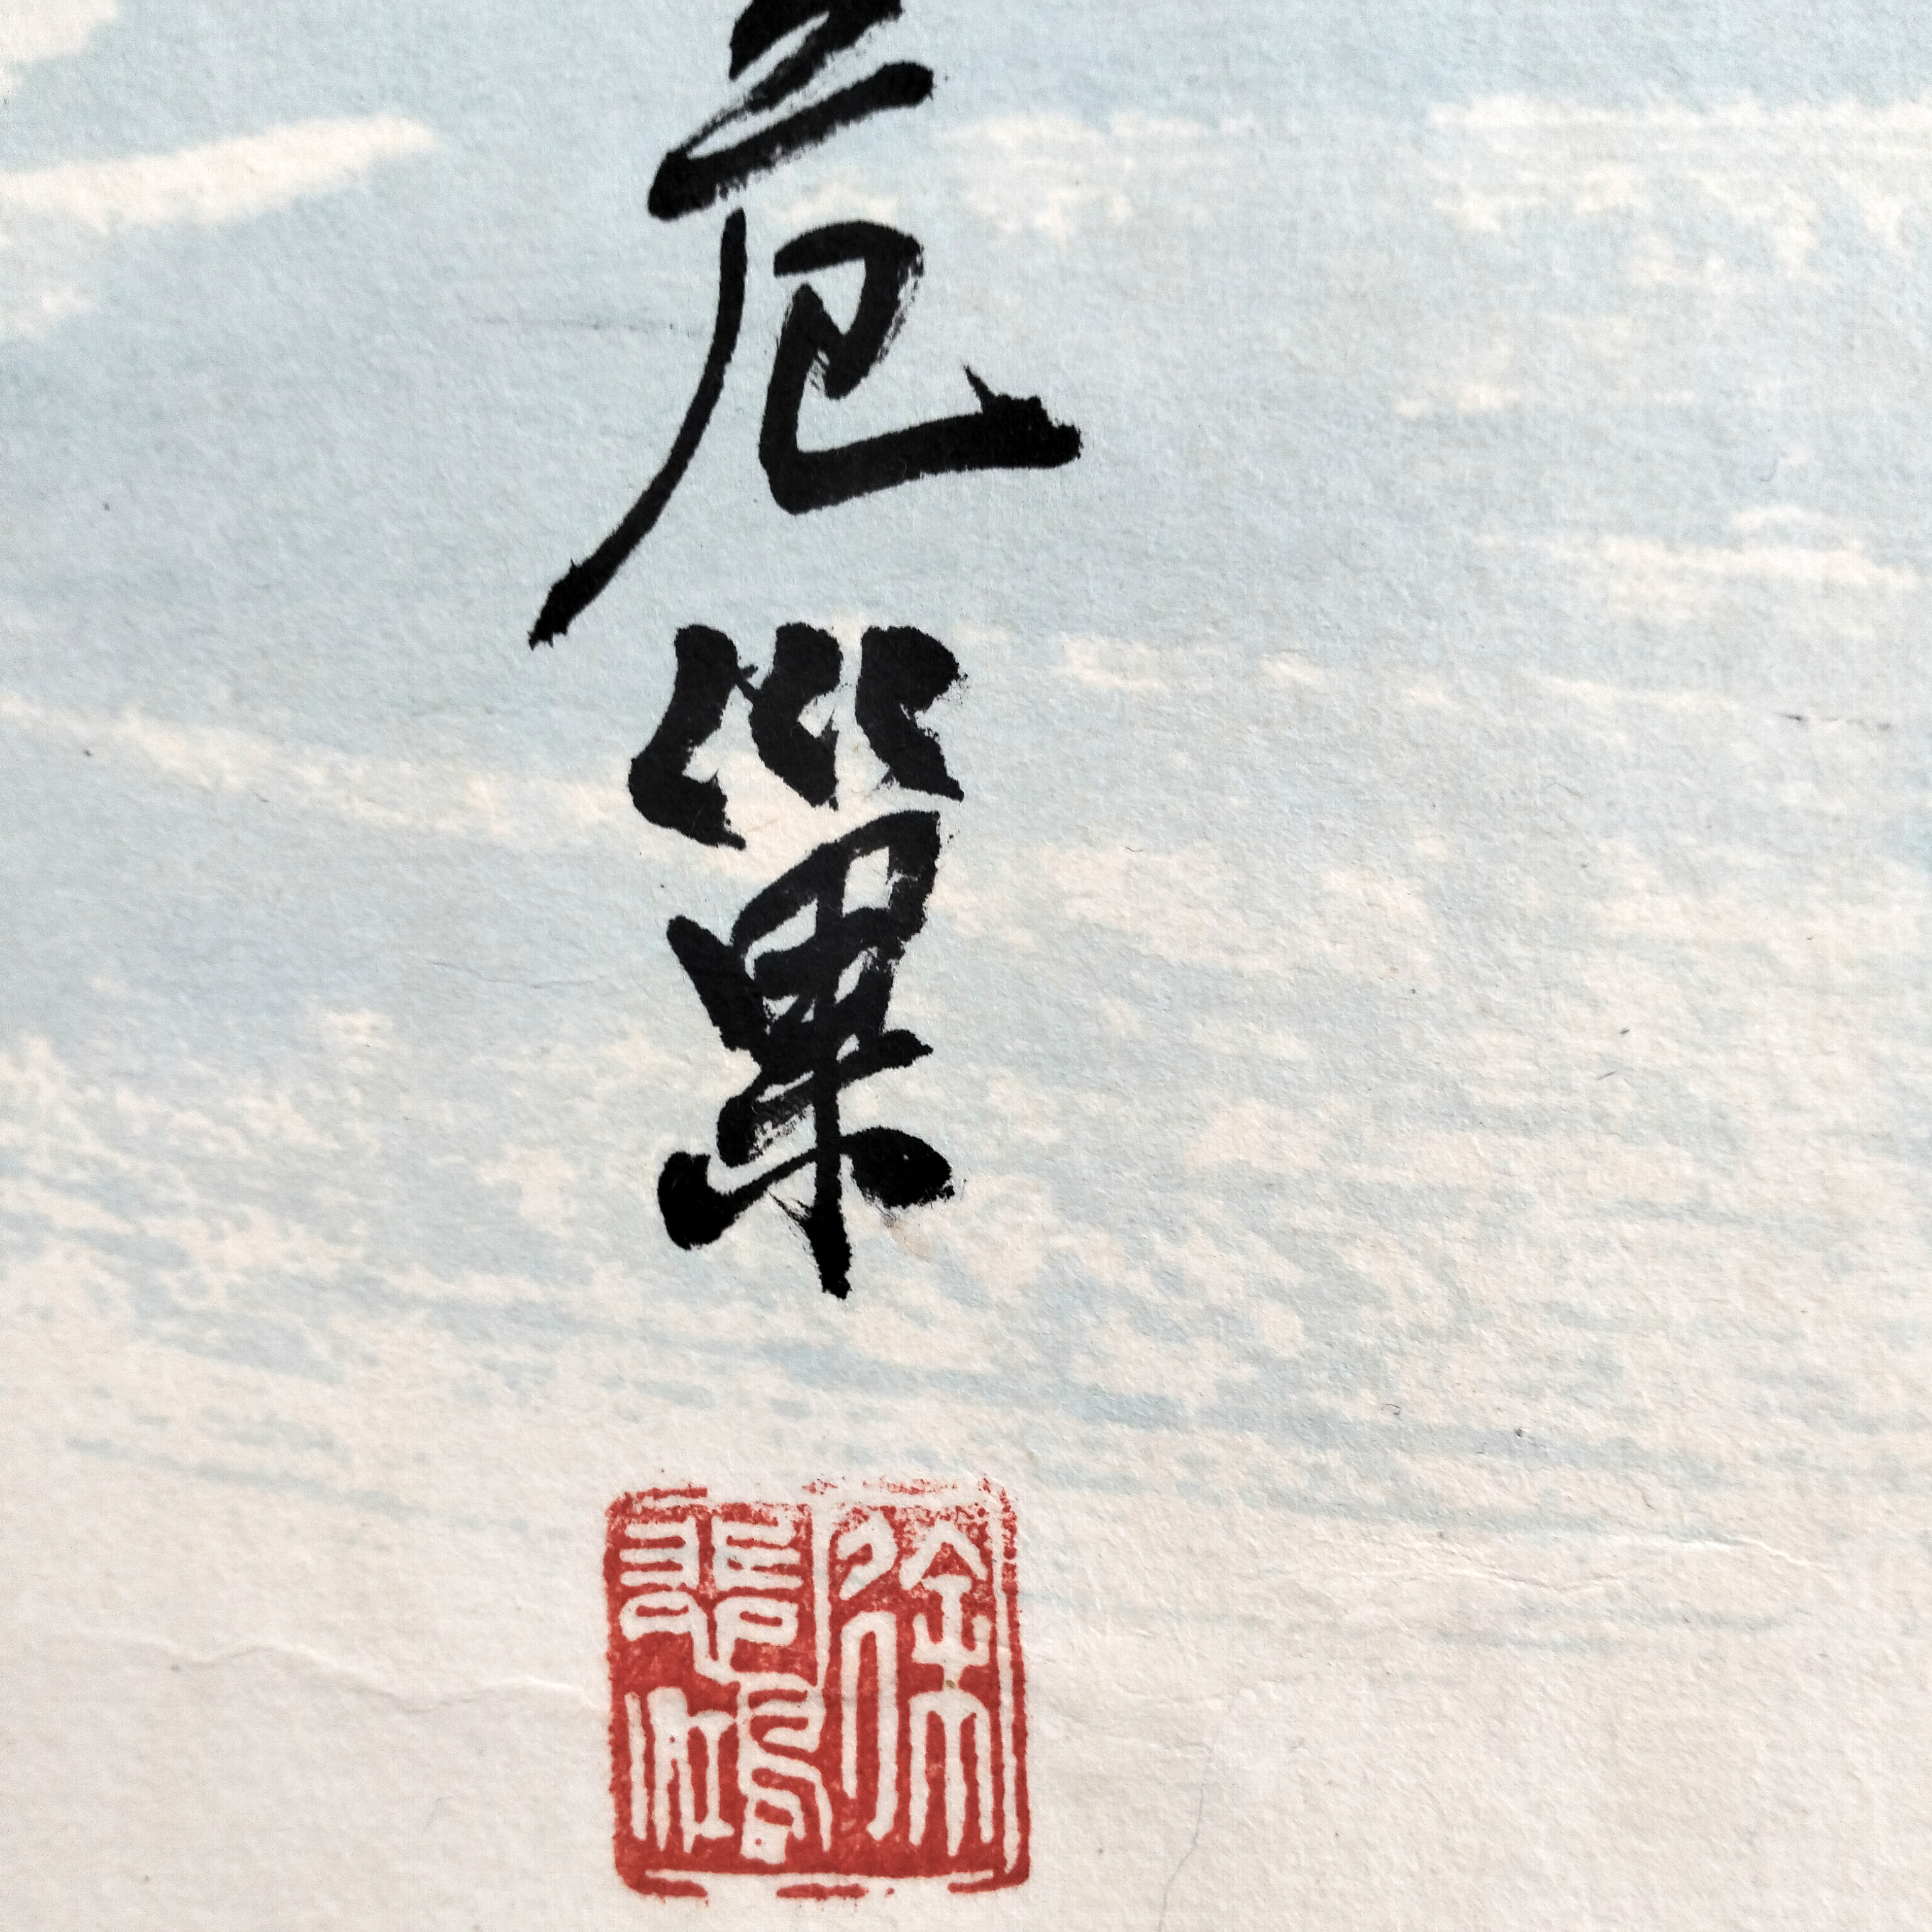 危巢
徐
悲鴻